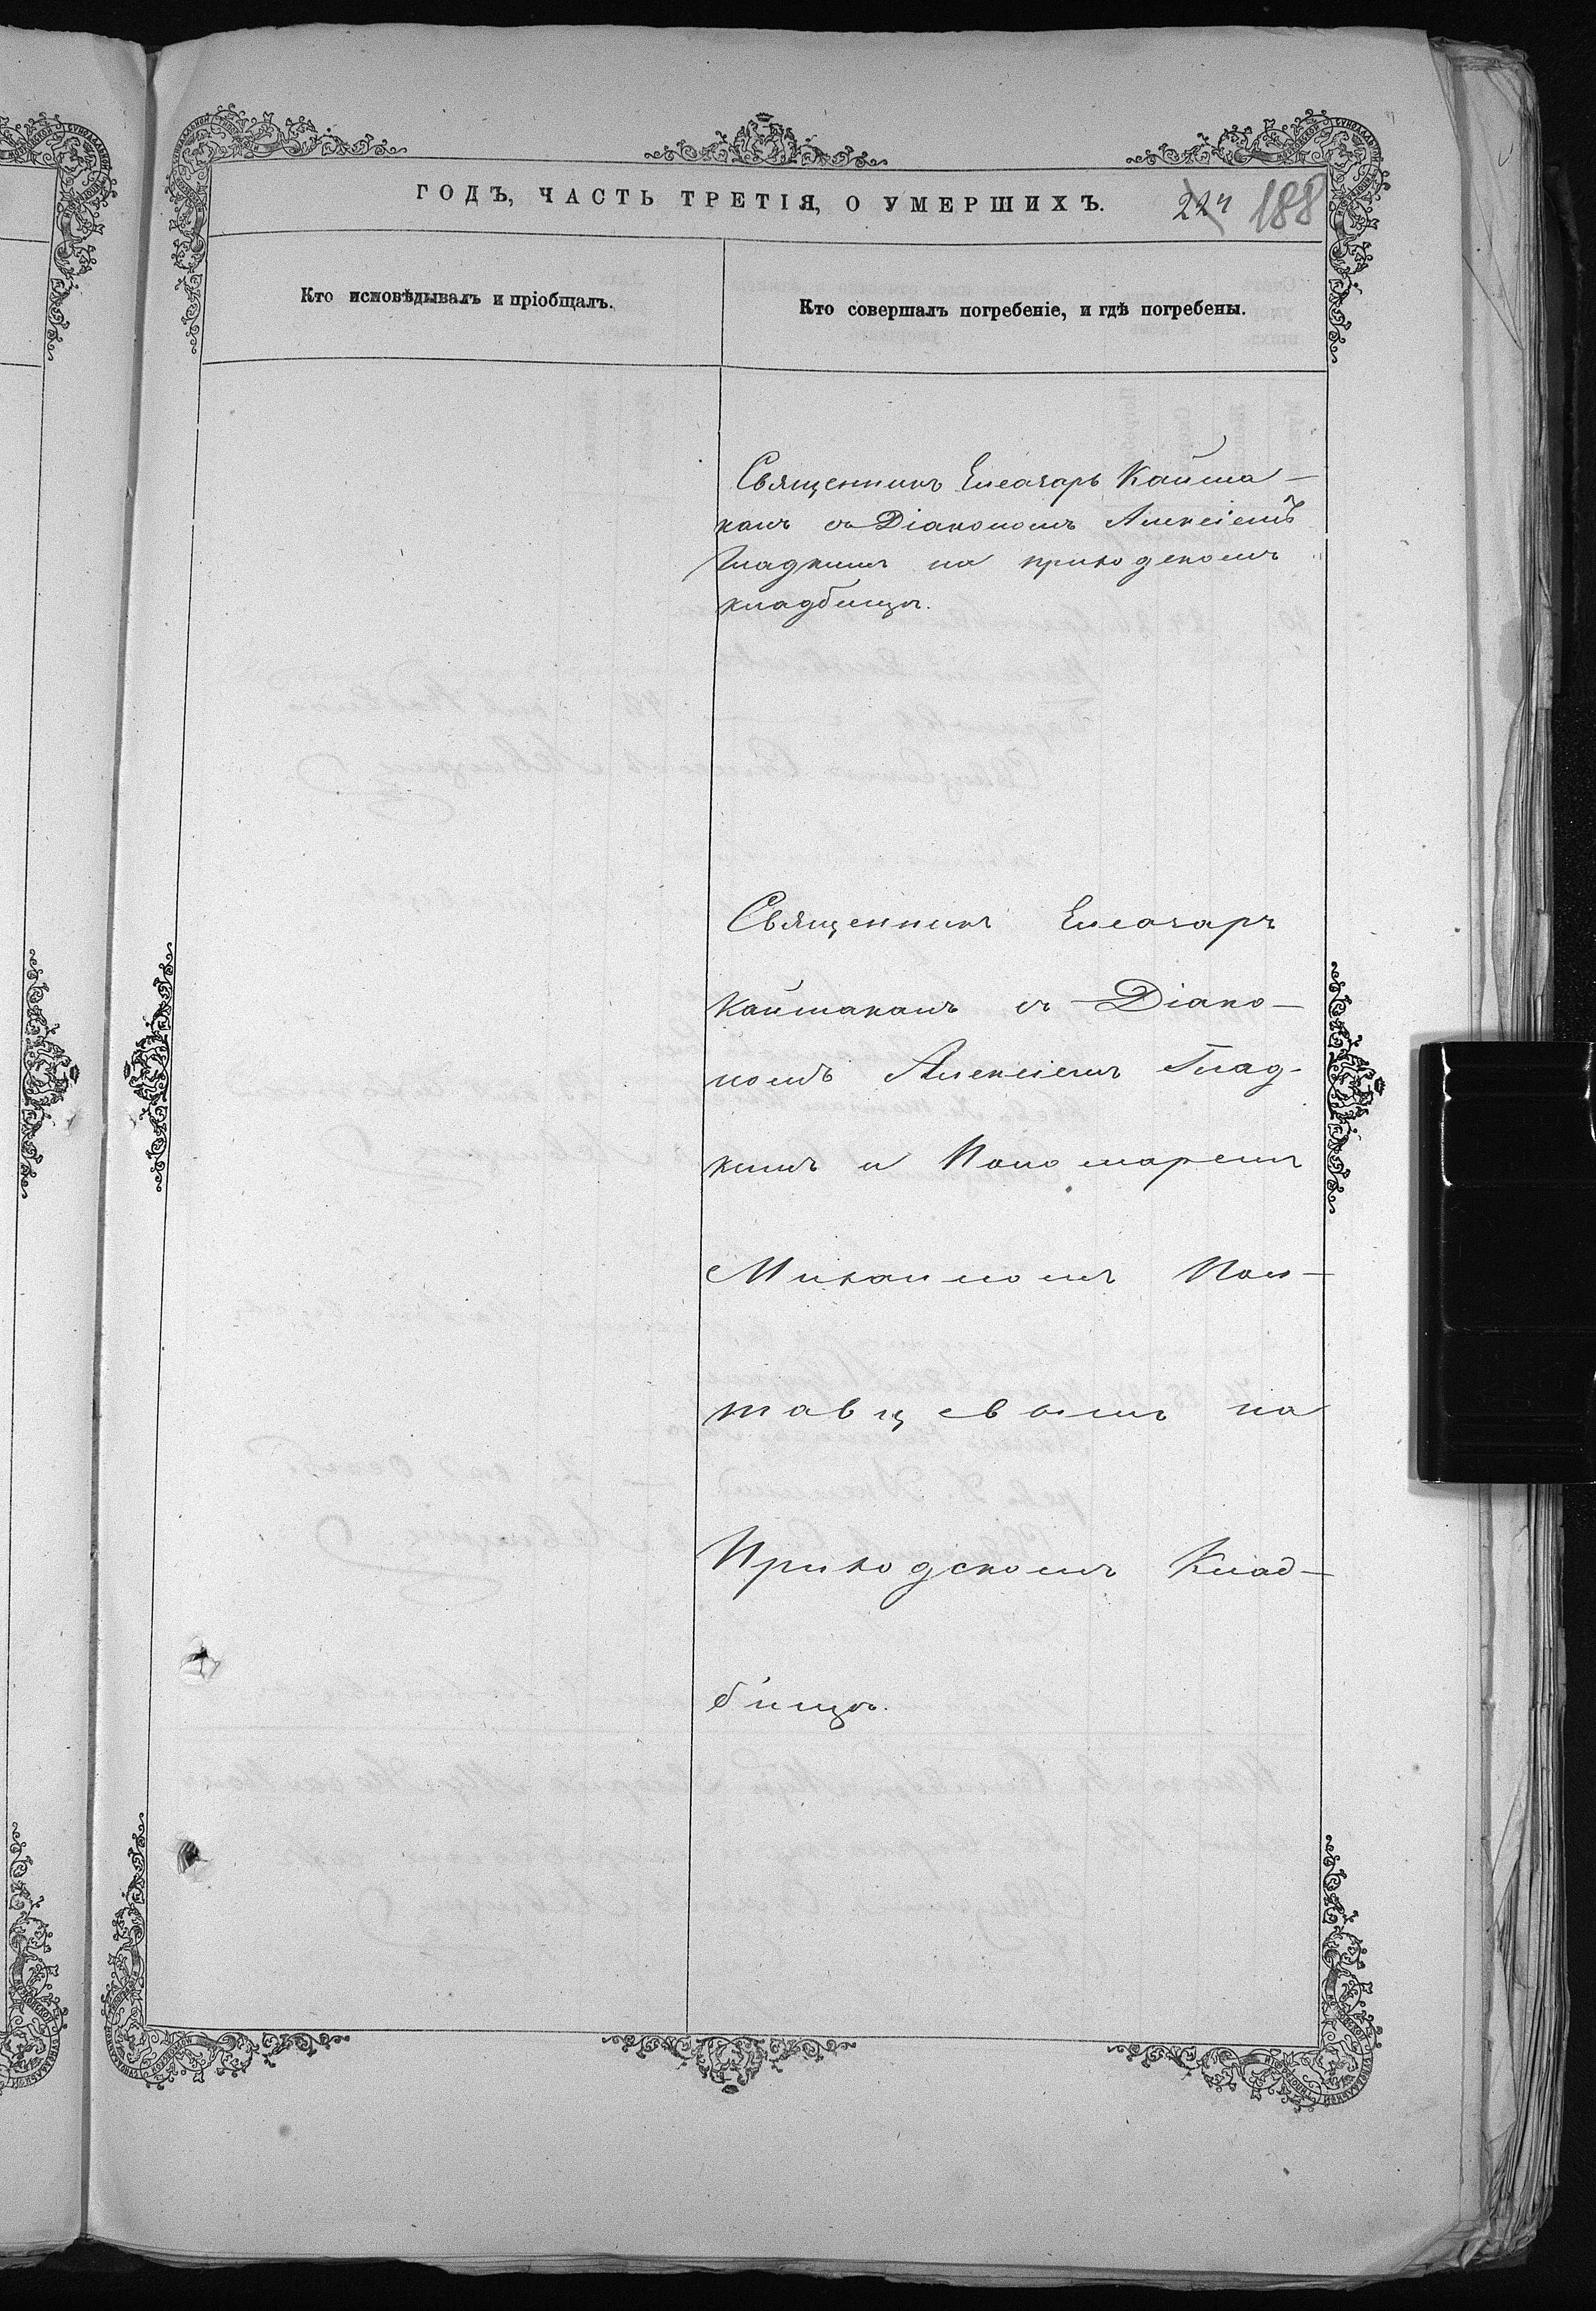 ГОДЪ, ЧАСТЬ ТРЕТІЯ, О УМЕРШИХЪ.
224 188
Кто исповѣдывалъ и пріобщалъ.
Кто совершалъ погребеніе, и гдѣ погребены.
Священникъ Елеазаръ Кайша-
канъ съ Діакономъ Алексіемъ
Гладкимъ на приходскомъ
кладбищѣ.
Священникъ Елеазаръ
Кайшаканъ съ Діако-
номъ Алексіемъ Глад-
кимъ и Пономаремъ
Михаиломъ Пол-
тавцевымъ на
Приходскомъ Клад-
бищѣ.